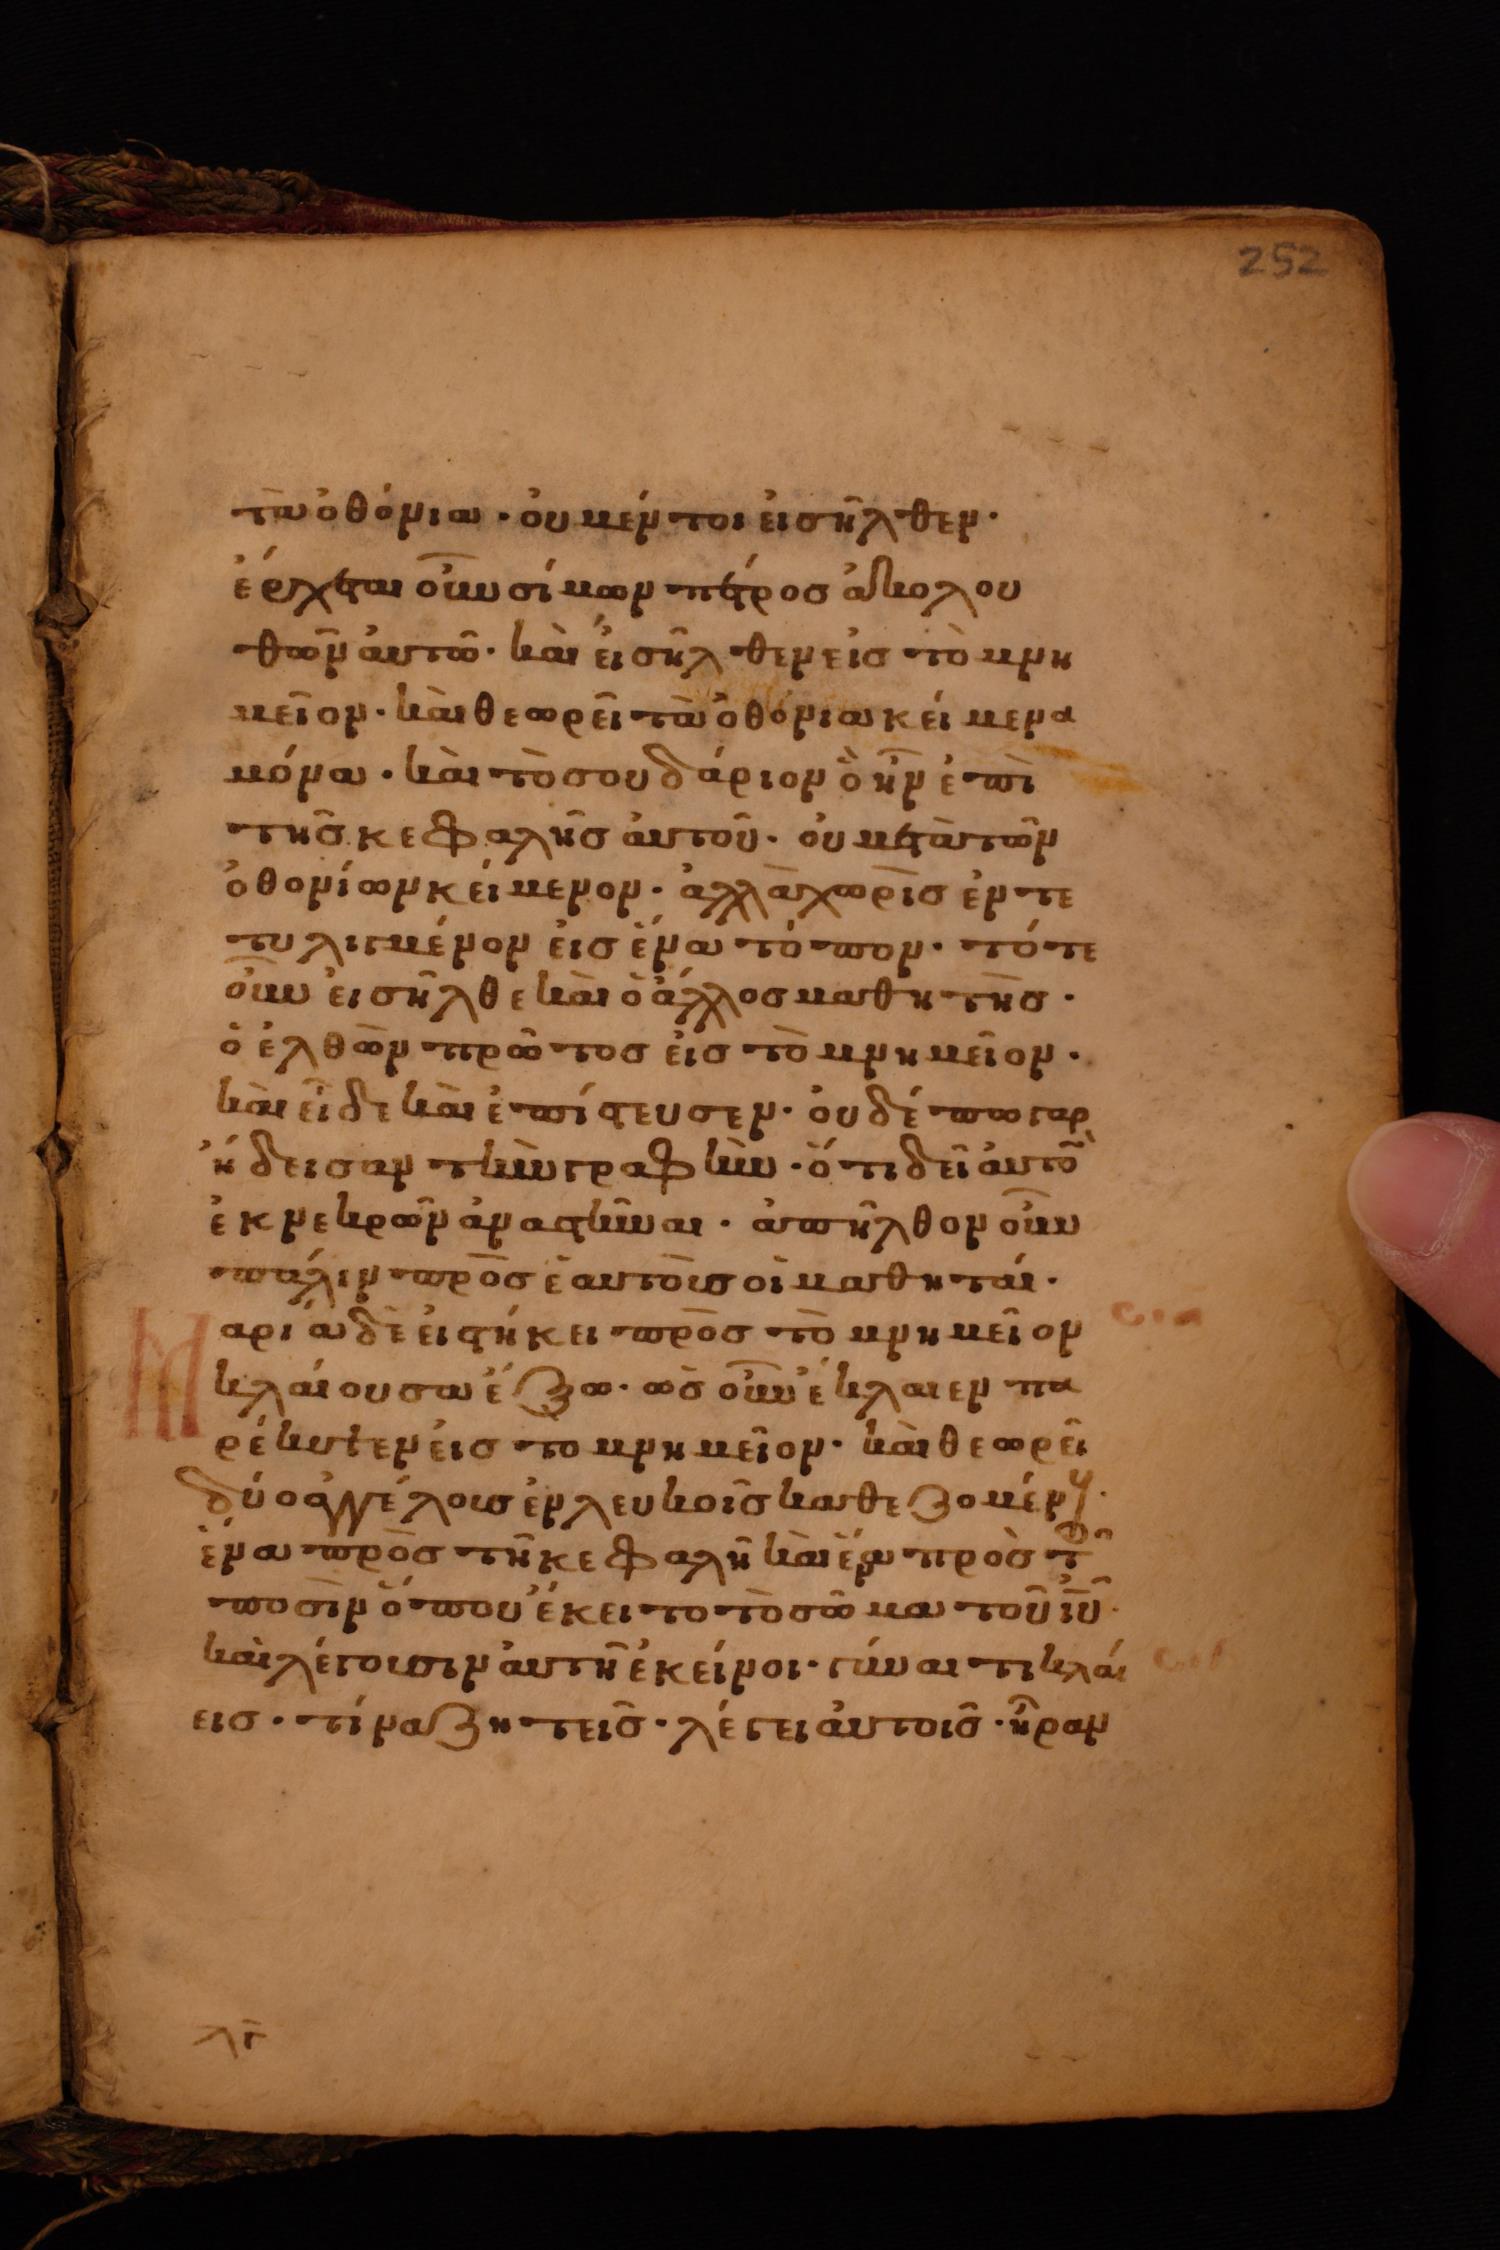 252
τὰ ὀθόνια · οὐ μέντοι εἰσῆλθεν ·
ἔρχεται οὖν σίμων πέτρος ἀκολου
θῶν αὐτῶ · καὶ εἰσῆλθεν εἰς τὸ μνη
μεῖον · καὶ θεωρεῖ τὰ ὀθόνια κείμενα
μόνα · καὶ τὸ σουδάριον ὃ ἦν ἐπὶ
τῆς κεφαλῆς αὐτοῦ · οὐ μετὰ τῶν
ὀθονίων κείμενον · ἀλλὰ χωρὶς ἐντε
τυλιγμένον εἰς ἕνα τόπον · τότε
οὖν εἰσῆλθε καὶ ὁ ἄλλος μαθητὴς ·
ὁ ἐλθὼν πρῶτος εἰς τὸ μνημεῖον ·
καὶ εἶδε καὶ ἐπίστευσεν · οὐδέπω γὰρ
ἤδεισαν τὴν γραφὴν · ὅτι δεῖ αὐτὸ
ἐκ νεκρῶν ἀναστῆναι · ἀπῆλθον οὖν
πάλιν πρὸς ἑαυτοὺς οἱ μαθηταί ·
Μαρία δὲ εἱστήκει πρὸς τὸ μνημεῖον
κλαίουσα ἔξω · ὡς οὖν ἔκλαιεν πα
ρέκυψεν εἰς το μνημεῖον · καὶ θεωρεῖ
δύο ἀγγέλους ἐν λευκοῖς καθεζομένους ·
ἕνα πρὸς τῆ κεφαλῆ καὶ ἕνα πρὸς τοῖς
ποσὶν ὅπου ἔκειτο τὸ σῶμα τοῦ ἰῦ ·
καὶ λέγουσιν αὐτῆ ἐκεῖνοι · γύναι τι κλαί
εις · τίνα ζητεῖς · λέγει αὐτοῖς · ἦραν
λγ